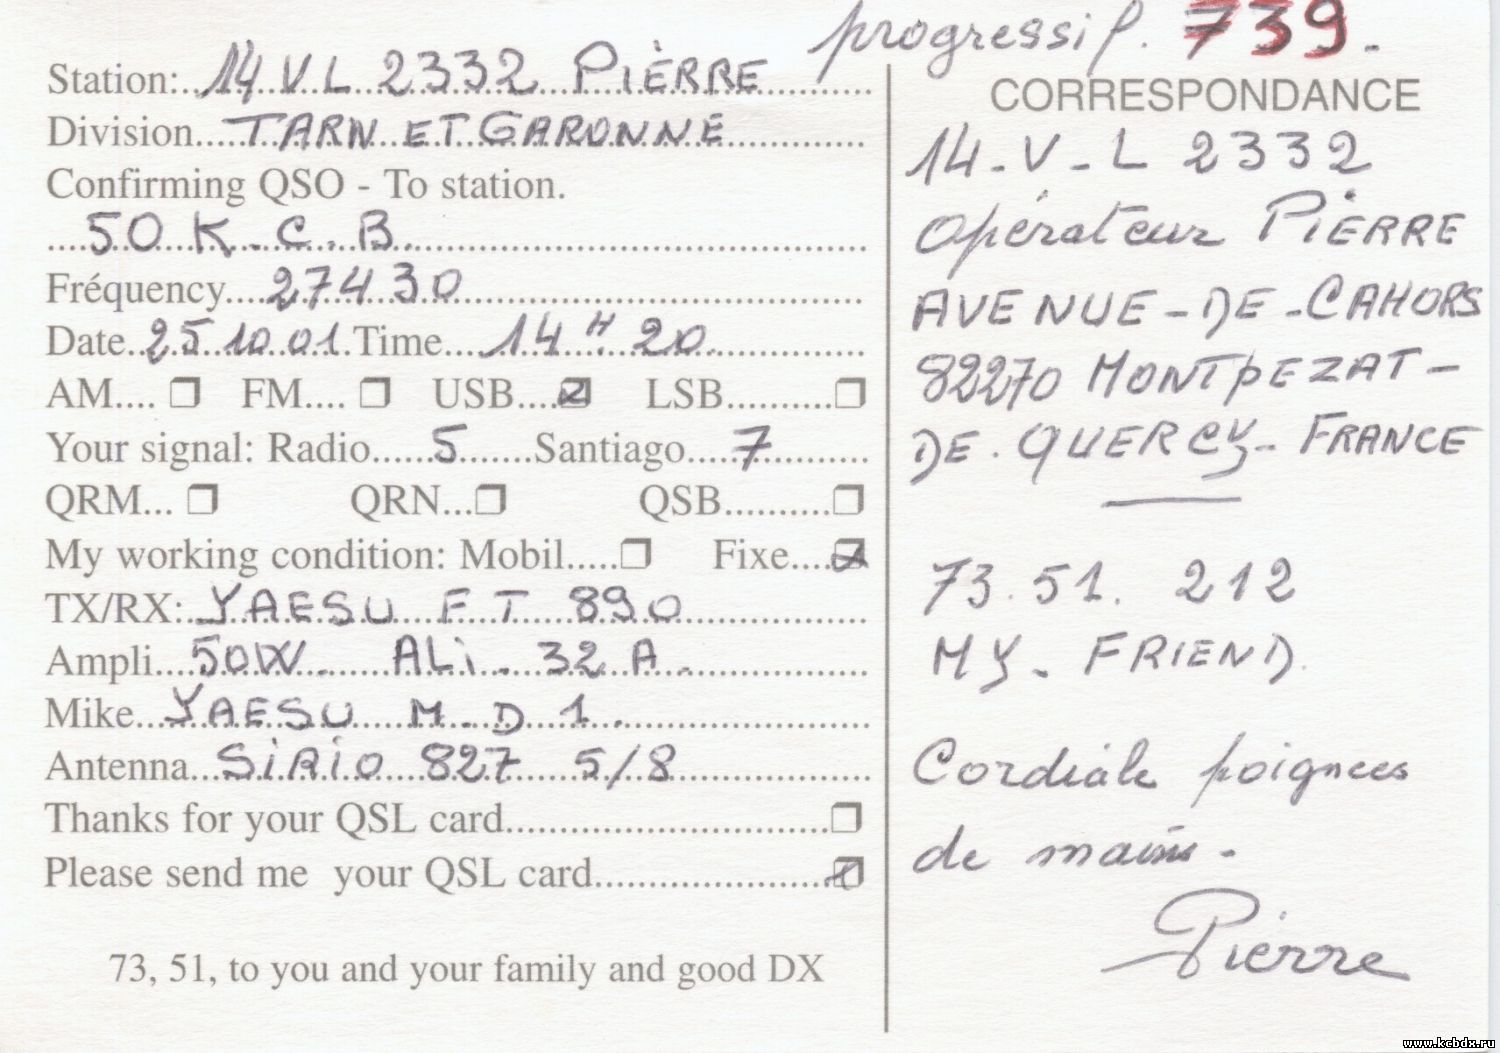 progressif. 739.
Station: 14 V L 2332 PIÈRRE
Division TARN ET GARONNE
Confirming QSO - To station.
50 K. C. B.
Fréquency 27430
Date 25 10 01 Time 14 H 20
AM FM USB LSB
Your signal: Radio 5 Santiago 7
QRM QRN QSB
My working condition: Mobil Fixe
TX/RX: YAESU F T 890
Ampli 50W. ALi. 32 A.
Mike YAESU M. D 1.
Antenna SiRiO 827 5/8
Thanks for your QSL card
Please send me your QSL card
73, 51, to you and your family and good DX
CORRESPONDANCE
14-V-L 2332
Opérateur PIÈRRE
AVENUE-DE-CAHORS
82270 MONTPEZAT-
DE. QUERCY- FRANCE
73. 51. 212
MY. FRIEND.
Cordiale poignees
de mains.
Pièrre
www.kcbdx.ru